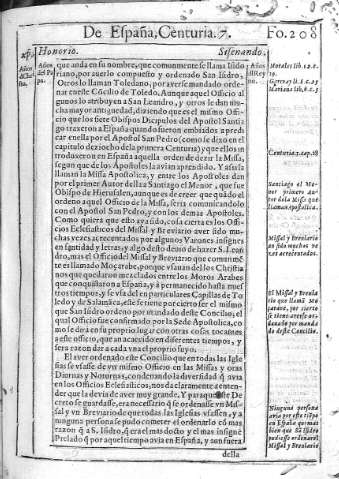 De España, Centuria. 7. Fo. 208
Honorio. Sisenando.
que anda en su nombre, que comunmente se llama Isido
riano, por auerlo compuesto y ordenado San Isidro,
Otros lo llaman Toledano, por auerse mandado orde
nar en este Cõcilio de Toledo. Aunque aquel Officio al
gunos lo atribuyen a San Leandro, y otros le dan mu
cha mayor antiguedad, diziendo que es el mismo Offi
cio que los siete Obispos Dicipulos del Apostol Santia
go traxeron a España quando fueron embiados a predi
car en ella por el Apostol San Pedro (como se dixo en el
capitulo deziocho de la primera Centuria) que ellos in
troduxeron en España aquella orden de dezir la Missa,
segun que de los Apostoles la auian aprendido. Y assi la
llaman la Missa Apostolica, y entre los Apostoles dan
por primer Autor della a Santiago el Menor, que fue
Obispo de Hierusalen, aunque es de creer que quãdo el
ordeno aquel Officio de la Missa, seria comunicandolo
con el Apostol San Pedro, y con los demas Apostoles.
Como quiera que ello aya sido, cosa cierta es los Offi
cios Eclesiasticos del Missal y Breviario aver sido mu
chas vezes acrecentados por algunos Varones insignes
en sanctidad y letras; y algo desto deuio de hazer S. Leã
dro, mas el Officio del Missal y Breviario que comunmẽ
te es llamado Moçarabe, porque vsauan del los Christia
nos que quedaron mezclados entre los Moros Arabes
que conquistaron a España, y à permanecido hasta nues
tros tiempos, y se vsa del en particulares Capillas de Tole
do y de Salamãca, este se tiene por cierto ser el mismo
que San Isidro ordeno por mandado deste Concilio, el
qual Officio fue confirmado por la Sede Apostolica, co
mo se dira en su proprio lugar con otras cosas tocantes
a este officio, que an acaecido en diferentes tiempos, y
sera razon dar a cada vna el proprio suyo.
El aver ordenado este Concilio que en todas las Igle
sias se vsasse de vn mismo Officio en las Missas y otras
Diurnas y Noturnas, condenando la diversidad q̃ auia
en los Officios Eclesiasticos, nos da claramente a enten-
der que la deuia de aver muy grande. Y para que este De
creto se guardasse, era necesario q̃ se ordenasse vn Mis-
sal y vn Breviario de que todas las Iglesias vsassen, y a
ninguna persona se pudo cometer el ordenarlo cõ mas
razon q̃ a S. Isidro, q̃ era el mas docto y el mas insigne
Prelado q̃ por aquel tiempo avia en España, y assi fuera
della
Morales lib. 12. c.
19.
Mariana lib. 6.
Centuria 1. cap. 18
Santiago el Me
nor primero au-
tor de la Missa que
llaman apostolica.
Missal y Breviario
an sido muchas ve
zes acrecentados.
El Missal y Brevia
rio que llamã Mo
çarabe, por cierto
se tiene averlo or
denado por manda
do deste Concilio.
Ninguna persona
avia por este tiẽpo
en España que mas
bien que S. Isidro
pudiesse ordenar el
Missal y Breviario